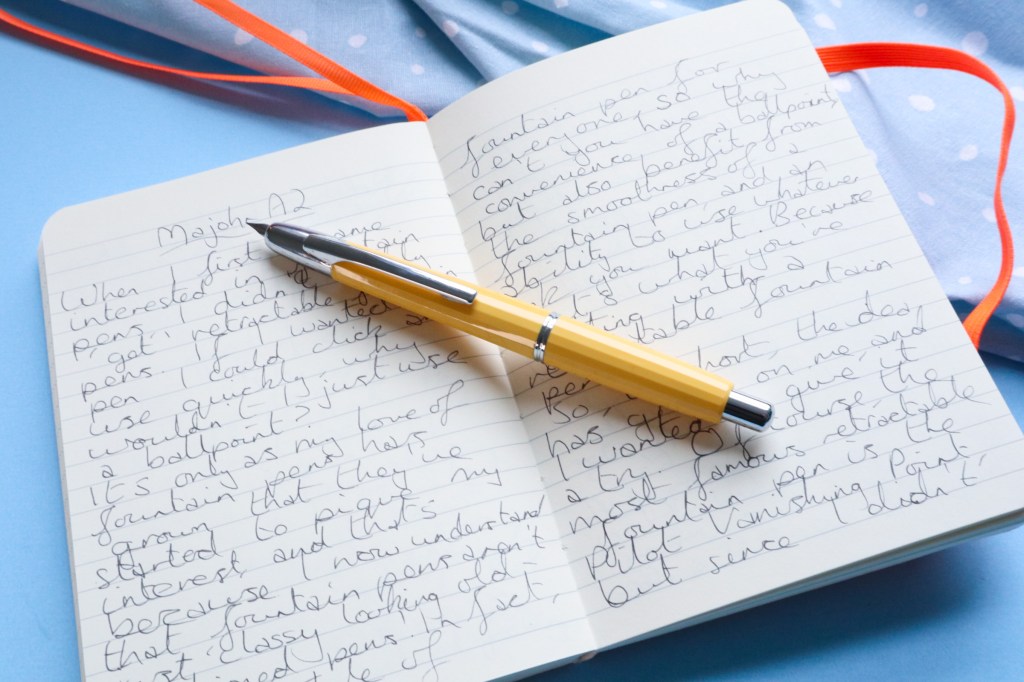 Majohn A2
When I first came
interested in
pens, I didn't
get retractable
pens. I could
pen
use quickly, why
wouldn't I just use
a ballpoint?
It's only as my love of
fountain pens has
grown that they've
started to pique my
interest, and that's
because I now understand
that fountain pens aren't
just classy looking old-
pens. In fact,
of
fountain pen for
everyone, so why
can't you have the
convenience of a ballpoint,
but also benefit from
the smoothness of a
fountain pen, and an
ability to use whatever
you want. Because
it's what you've
with a
fountain
pen
So, short, the idea
has on me, and
I wanted to give it
a try. Of course, the
most famous retractable
fountain pen is the
Pilot Vanishing Point,
but since I didn't